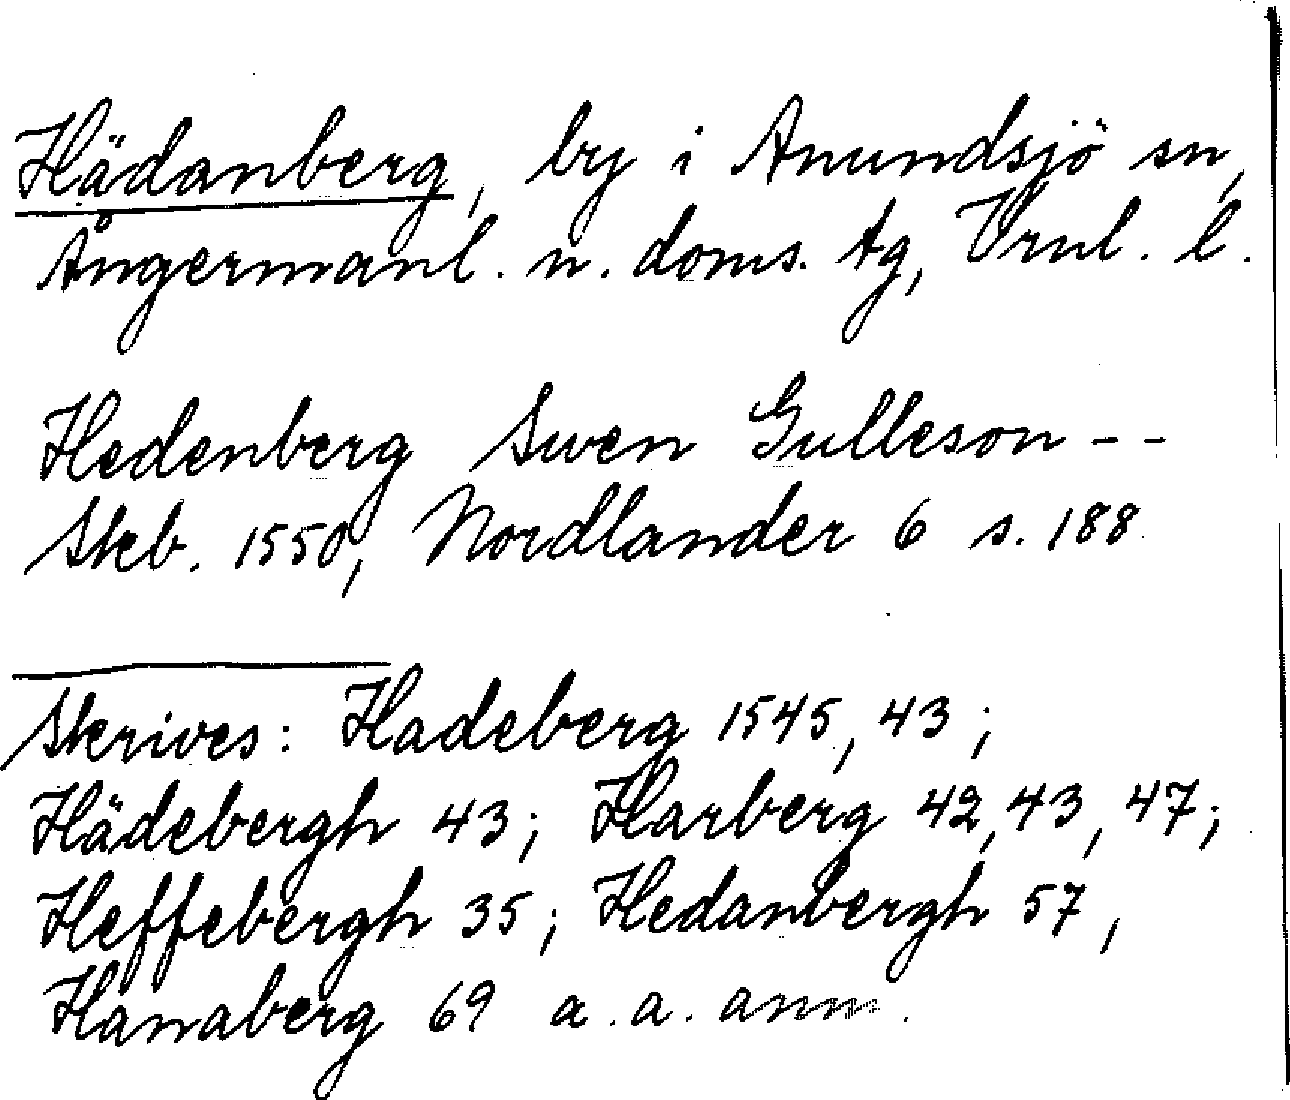 Hädanberg, by i Anundsjö sn,
Ångermanl. n. doms. tg, Vrnl. l.
Hedenberg Swen Gulleson - -
Skb. 1550, Nordlander 6 s. 188
Skrives: Hadeberg 1545, 43;
Hädebergh 43; Harberg 42, 43, 47;
Heffebergh 35; Hedanbergh 57,
Hanaberg 69 a. a. anm.